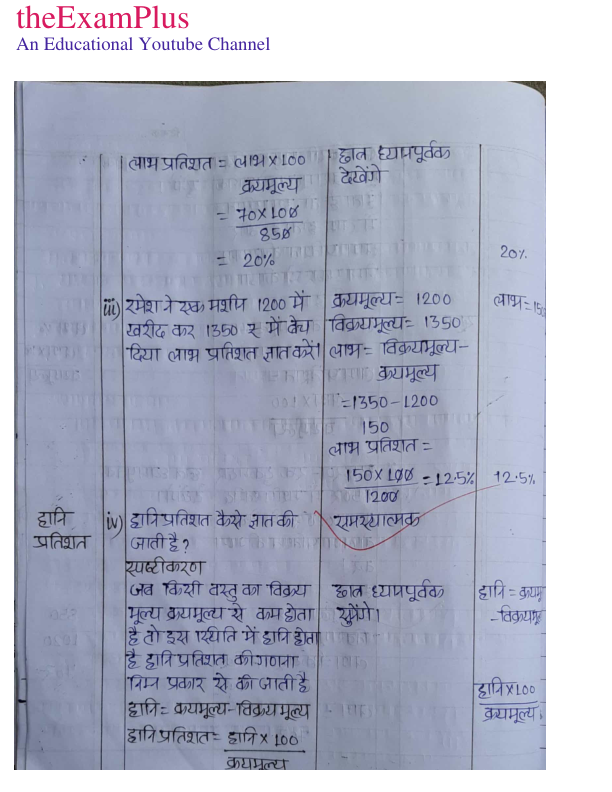 theExamPlus
An Educational Youtube Channel
लाभ प्रतिशत = लाभ × 100
क्रयमूल्य
= 70 × 100
850
= 20%
छात्र ध्यानपूर्वक
देखेंगे
20%
iii) रमेश ने एक मशीन 1200 में
खरीद कर 1350 रु में बेच
दिया लाभ प्रतिशत ज्ञात करें।
क्रयमूल्य = 1200
विक्रयमूल्य = 1350
लाभ = विक्रयमूल्य -
क्रयमूल्य
= 1350 - 1200
150
लाभ प्रतिशत =
150 × 100 = 12.5%
1200
लाभ = 150
12.5%
हानि
प्रतिशत
iv) हानि प्रतिशत कैसे ज्ञात की
जाती है?
समस्यात्मक
स्पष्टीकरण
जब किसी वस्तु का विक्रय
मूल्य क्रयमूल्य से कम होता
है तो इस स्थिति में हानि होता
है हानि प्रतिशत की गणना
निम्न प्रकार से की जाती है
हानि = क्रयमूल्य - विक्रयमूल्य
हानि प्रतिशत = हानि × 100
क्रयमूल्य
छात्र ध्यानपूर्वक
सुनेंगे।
हानि = क्रयमू
- विक्रयमू
हानि × 100
क्रयमूल्य